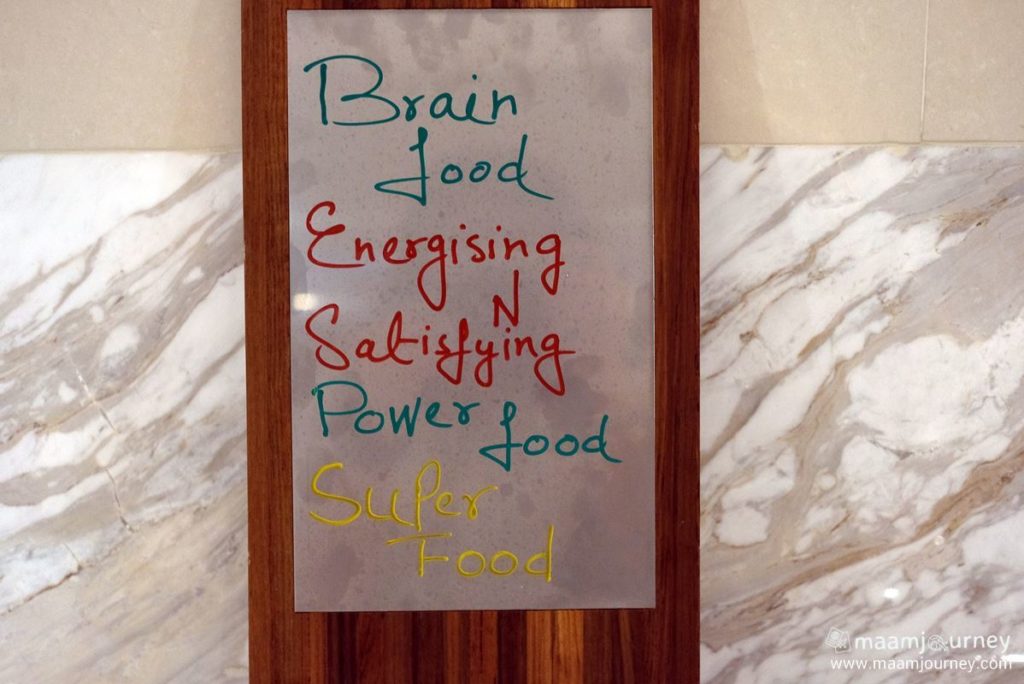 Brain
food
Energising
N
Satisfying
Power food
Super
Food
maamjourney
www.maamjourney.com